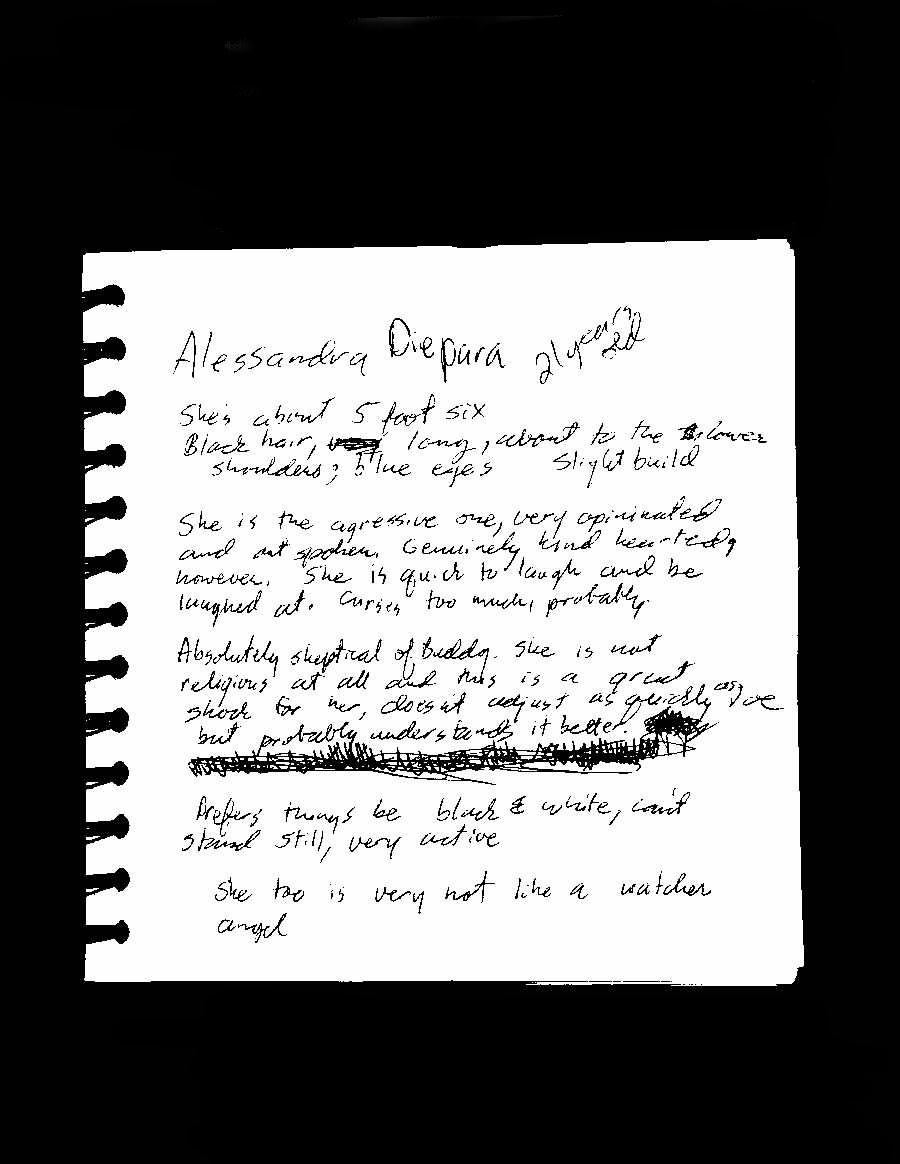 Alessandra Diepura 21 years old
She's about 5 foot six
Black hair, long, about to the lower
shoulders; blue eyes Slight build
She is the agressive one, very opininated
and out spoken. Genuinely kind hearted,
however. She is quick to laugh and be
laughed at. Curses too much, probably.
Absolutely skeptical of Buddy. She is not
religious at all and this is a great
shock for her, doesn't adjust as quickly as Joe
but probably understands it better.
Prefers things be black & white, can't
stand still, very active
She too is very not like a watcher
angel